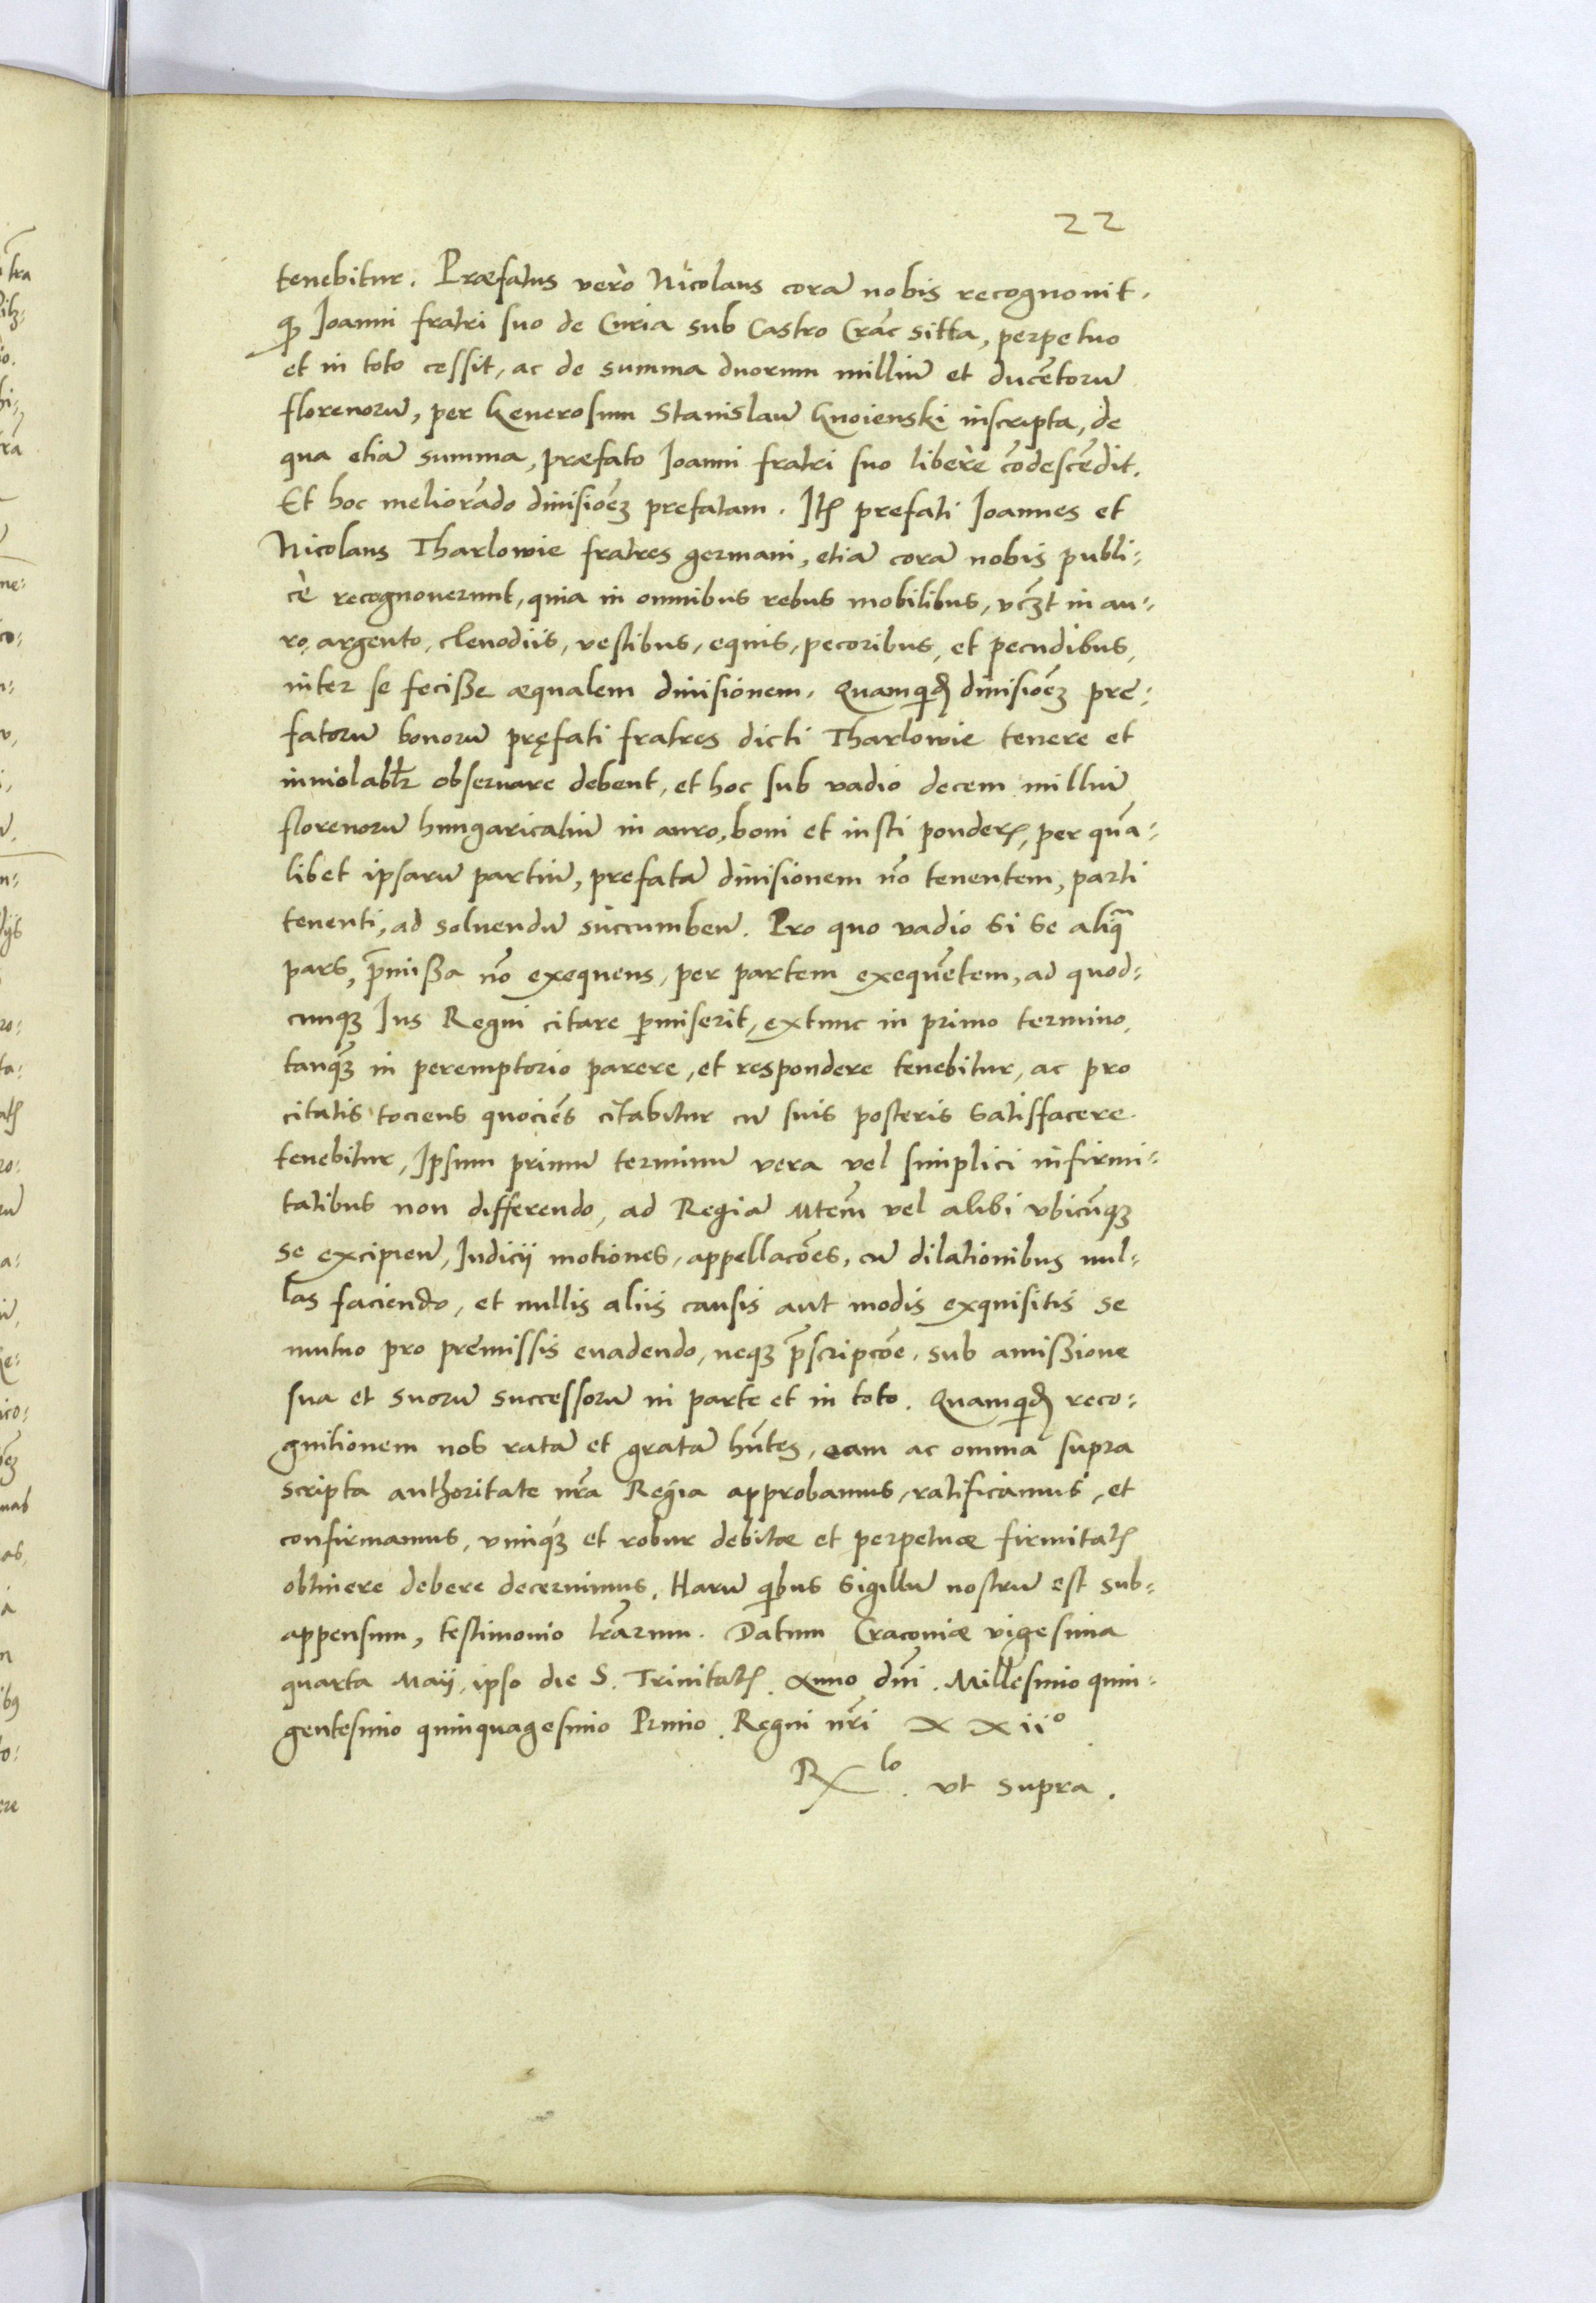 22
tenebitur. Præfatus verò Nicolaus corā nobis recognouit.
q Joanni fratri suo de Curia sub Castro Crac̄ sitta, perpetuo
et in toto cessit, ac de summa duorum milliū et ducētorū
florenorū, per Generosum Stanislaū Gnoienski inscripta, de
qua etiā summa, præfato Joanni fratri suo liberè cōdescēdit.
Et hoc meliorādo diuisioēȝ prefatam. Itȝ prefati Joannes et
Nicolaus Tharlowie fratres germani, etiā corā nobis publi:
cè recognouerunt, quia in omnibus rebus mobilibus, vcȝt in au:
ro, argento, clenodiis, vestibus, equis, pecoribus, et pecudibus,
inter se feciße æqualem diuisionem. Quamqidȝ diuisioēȝ pre:
fatorū bonorū pręfati fratres dicti Tharlowie tenere et
inuiolabłr obseruare debent, et hoc sub vadio decem milliū
florenorū hungaricaliū in auro, boni et iusti ponderȝ, per quā:
libet ipsarū partiū, prefatā diuisionem nō tenentem, parti
tenenti, ad soluendū succumbeñ. Pro quo vadio si se aliqā
pars, p̄mißa nō exequens, per partem exequētem, ad quod:
cunqȝ Jus Regni citare p̱miserit, extunc in primo termino,
tanqȝ in peremptorio parere, et respondere tenebitur, ac pro
citatis tociens quociēs citabitur cū suis posteris satisfacere
tenebitur, Ipsum primū terminū vera vel simplici infirmi:
tatibus non differendo, ad Regiā Mtem̄ vel alibi vbicūqȝ
se excipieñ, Judicij motiones, appellacōes, cū dilationibus nul:
las faciendo, et nullis aliis causis aut modis exquisitis se
mutuo pro premissis euadendo, neqȝ p̄scripcōe, sub amißione
sua et suorū successorū in parte et in toto. Quamqidȝ reco:
gnitionem nos ratā et gratā hñtes, eam ac omnia supra
scripta authoritate nr̄a Regia approbamus, ratificamus, et
confirmamus, vimqȝ et robur debitæ et perpetuæ firmitatȝ
obtinere debere decernimus. Harū qibus Sigillū nostrū est sub:
appensum, testimonio lr̄arum. Datum Cracouiæ vigesima
quarta Maij, ipso die S. Trinitatȝ. Anno dn̄i. Millesimo quin:
gentesimo quinquagesimo Primo. Regni nr̄i XXIIº
Rx lo. vt supra.